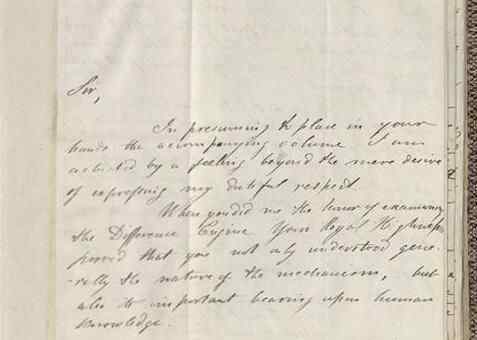 Sir,
In presuming to place in your
hands the accompanying volume I am
actuated by a feeling beyond the mere desire
of expressing my dutiful respect.
When you did me the honor of examining
the Difference Engine Your Royal Highness
proved that you not only understood gene-
rally the nature of the mechanism, but
also its important bearing upon human
knowledge.